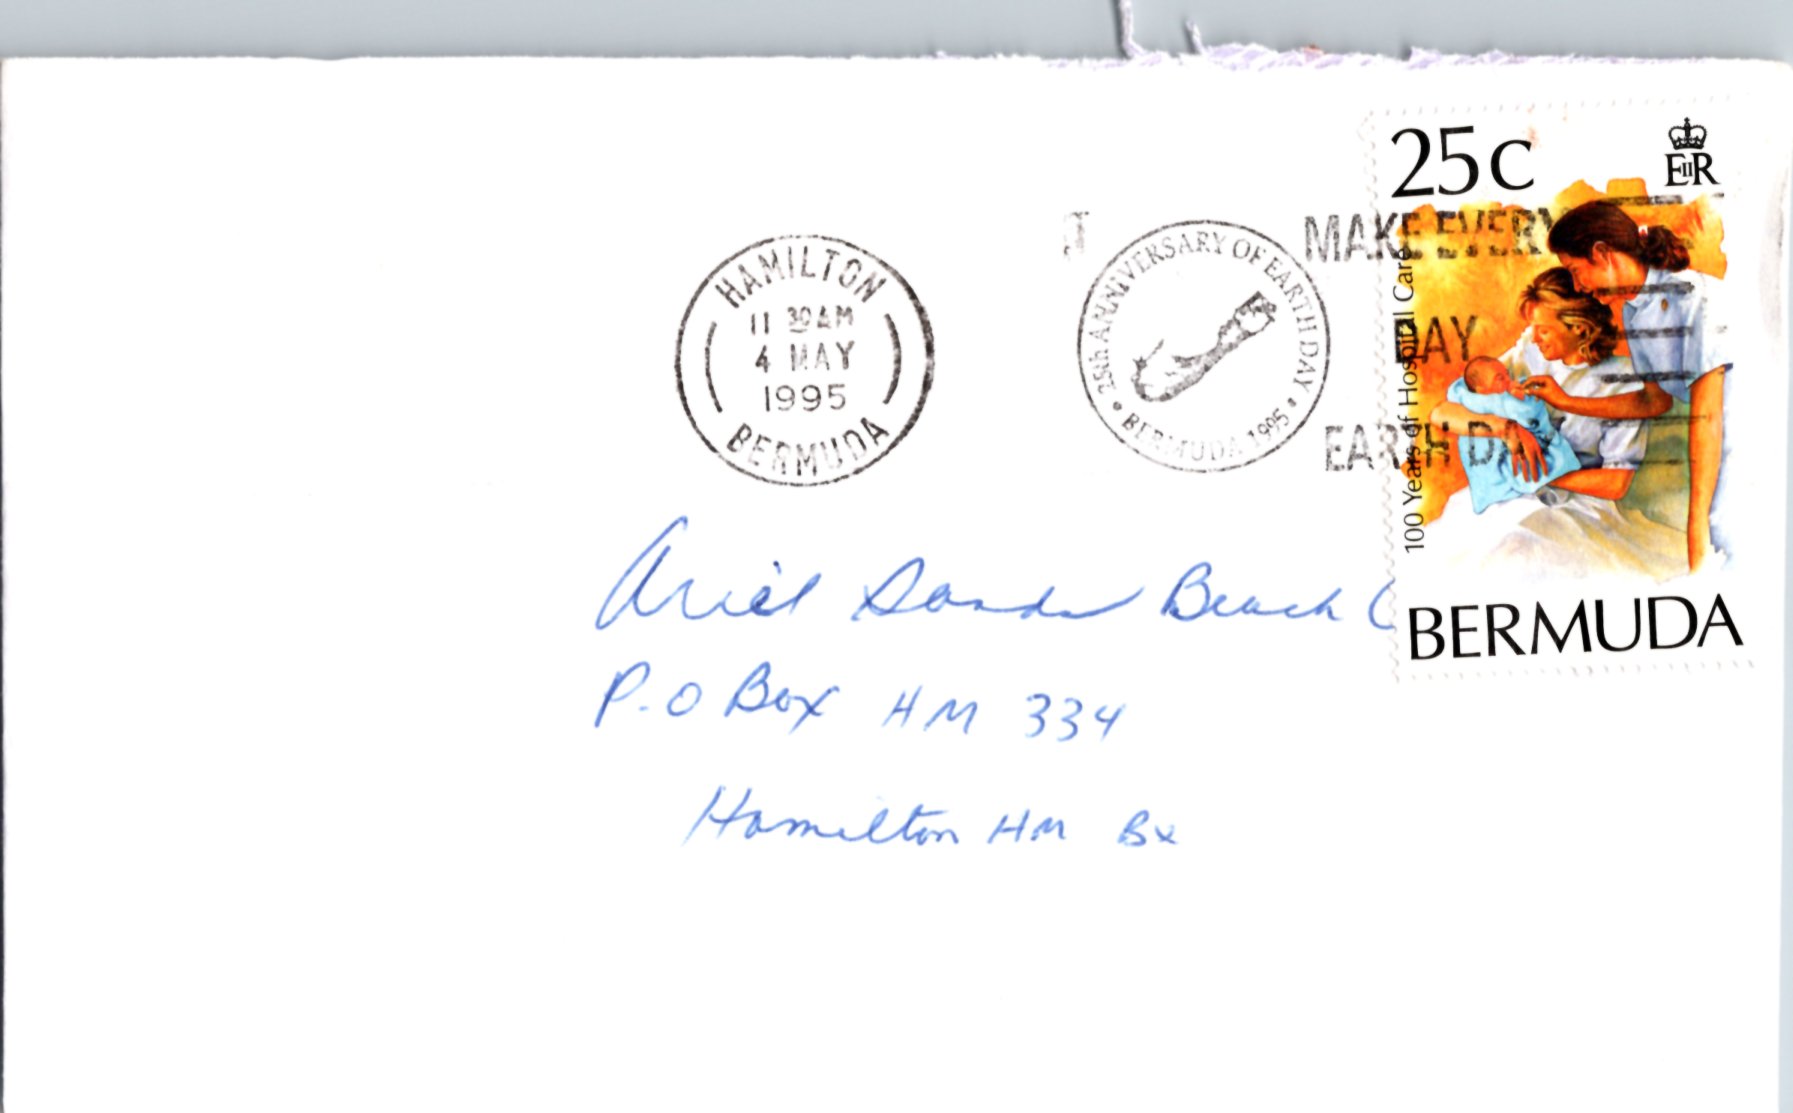 25c
EIIR
HAMILTON
11 30 AM
4 MAY
1995
BERMUDA
25th ANNIVERSARY OF EARTH DAY
• BERMUDA 1995 •
MAKE EVERY
DAY
EARTH DAY
100 Years of Hospital Care
BERMUDA
Ariel Sands Beach C
P.O Box HM 334
Hamilton HM Bx